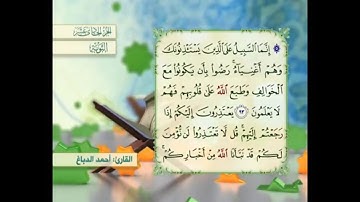 الجزء الحادي عشر
التوبة
إِنَّمَا ٱلسَّبِيلُ عَلَى ٱلَّذِينَ يَسْتَـْٔذِنُونَكَ
وَهُمْ أَغْنِيَآءُ ۚ رَضُوا۟ بِأَن يَكُونُوا۟ مَعَ
ٱلْخَوَالِفِ وَطَبَعَ ٱللَّهُ عَلَىٰ قُلُوبِهِمْ فَهُمْ
لَا يَعْلَمُونَ ٩٣ يَعْتَذِرُونَ إِلَيْكُمْ إِذَا
رَجَعْتُمْ إِلَيْهِمْ ۚ قُل لَّا تَعْتَذِرُوا۟ لَن نُّؤْمِنَ
لَكُمْ قَدْ نَبَّأَنَا ٱللَّهُ مِنْ أَخْبَارِكُمْ ۚ
القارئ: أحمد الدباغ